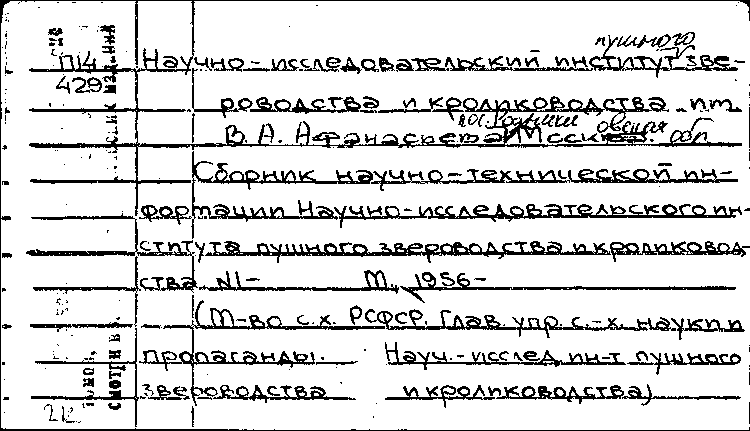 пушного
П14 Научно-исследовательский институт зве-
429 роводства и кролиководства им.
пос. Родники
В. А. Афанасьева Московская обл.
Сборник научно-технической ин-
формации Научно-исследовательского ин-
ститута пушного звероводства и кроликовод-
ства N1- М., 1956-
(М-во с.х. РСФСР. Глав. упр. с.-х. науки и
пропаганды. Науч.-исслед. ин-т пушного
звероводства и кролиководства)